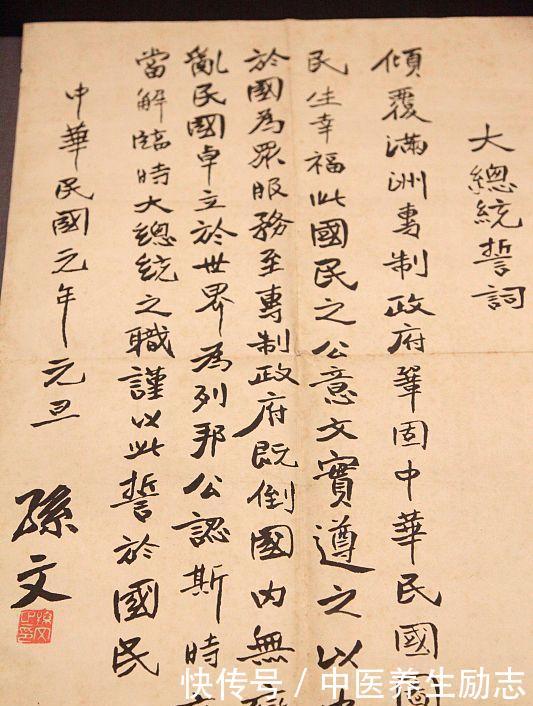 大總統誓詞
傾覆滿洲專制政府鞏固中華民國圖
民生幸福此國民之公意文實遵之以
於國為眾服務至專制政府既倒國內無
亂民國卓立於世界為列邦公認斯時
當解臨時大總統之職謹以此誓於國民
中華民國元年元旦
孫文
快传号 / 中医养生励志